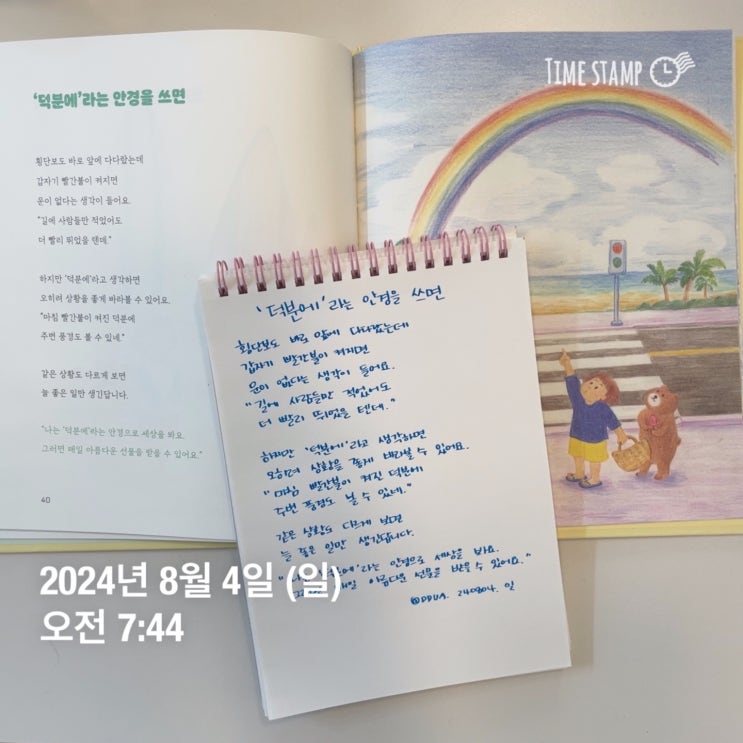 TIME STAMP
'덕분에'라는 안경을 쓰면
횡단보도 바로 앞에 다다랐는데
갑자기 빨간불이 켜지면
운이 없다는 생각이 들어요.
"길에 사람들만 적었어도
더 빨리 뛰었을 텐데."
하지만 '덕분에'라고 생각하면
오히려 상황을 좋게 바라볼 수 있어요.
"마침 빨간불이 켜진 덕분에
주변 풍경도 볼 수 있네."
같은 상황도 다르게 보면
늘 좋은 일만 생긴답니다.
"나는 '덕분에'라는 안경으로 세상을 봐요.
그러면 매일 아름다운 선물을 받을 수 있어요."
40
'덕분에'라는 안경을 쓰면
횡단보도 바로 앞에 다다랐는데
갑자기 빨간불이 켜지면
운이 없다는 생각이 들어요.
"길에 사람들만 적었어도
더 빨리 뛰었을 텐데."
하지만 '덕분에'라고 생각하면
오히려 상황을 좋게 바라볼 수 있어요.
"마침 빨간불이 켜진 덕분에
주변 풍경도 볼 수 있네."
같은 상황도 다르게 보면
늘 좋은 일만 생긴답니다.
라는 안경으로 세상을 봐요.
매일 아름다운 선물을 받을 수 있어요."
240804. 일
2024년 8월 4일 (일)
오전 7:44